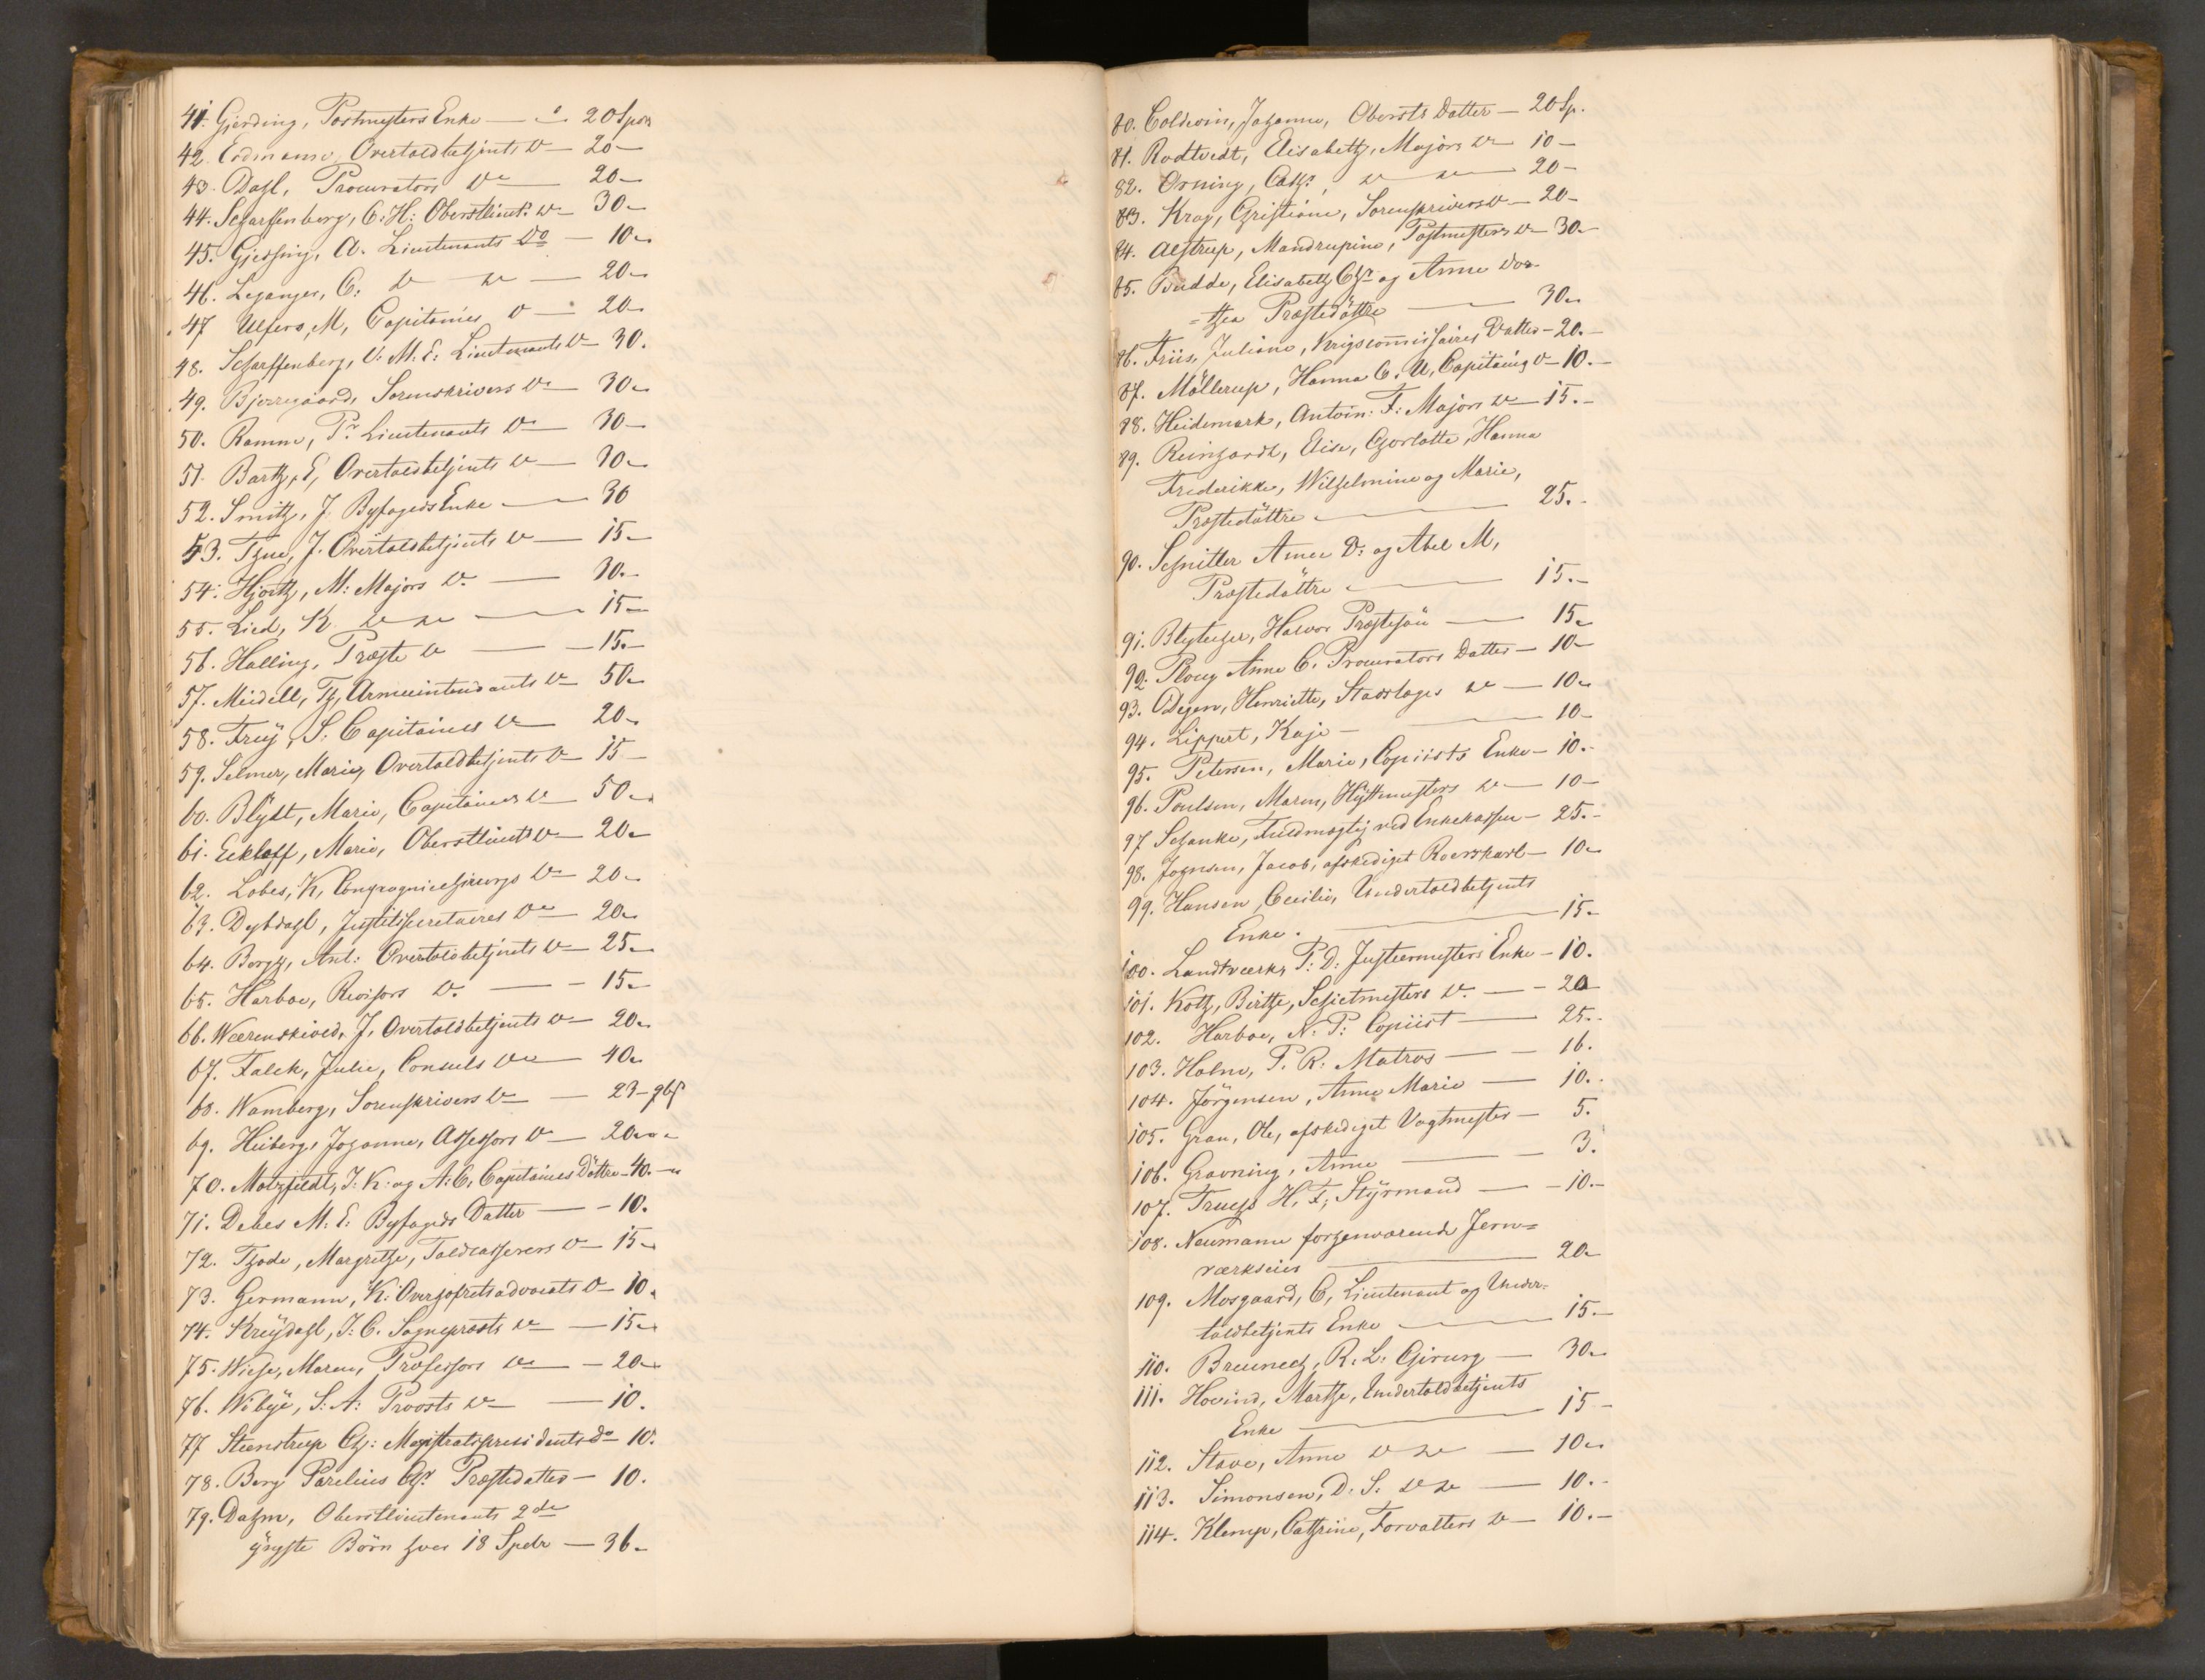 41. Gjerding, Postmesters Enke — " — 20 Spdr
42. Erdmann, Overtoldbetjents Do — 20 —
43. Dahl, Procurators Do — 20 —
44. Scharffenberg, C: H: Oberstlieut: Do — 30 —
45. Gjessing, A. Lieutenants Do — 10 —
46. Leganger, C: Do Do — 20 —
47 Ulfers, M, Capitaines Do — 20 —
48. Scharffenberg, U: M: E: Lieutenants Do — 30.
49. Bjerregaard, Sorenskrivers Do — 30 —
50. Ramm, Pr. Lieutenants Do — 30 —
51. Barth, E, Overtoldbetjents Do — 30 —
52. Smith, J. Byfogeds Enke — 30
53. Thue, J. Overtoldbetjents Do — 15 —
54. Hjorth, M: Majors Do — 30. —
55. Lied, K Do Do — 15 —
56. Halling, Præste Do — 15. —
57. Meidell, Th, Armeeintendants Do — 50 —
58. Frey, S: Capitaines Do — 20 —
59. Selmer, Marie, Overtoldbetjents Do — 15 —
60. Blÿtt, Marie, Capitaines Do — 50 —
61. Eckloff, Marie, Oberstlieuts Do — 20 —
62. Lobes, K, Compagniechirurgs Do — 20 —
63. Dybdahl, Justitssecretaires Do — 20 —
64. Borch, Ant: Overtoldbetjents Do — 25 —
65. Harboe, Revisors Do — 15 —
66. Wærenskiold, J, Overtoldbetjents Do — 20 —
67. Falck, Julie, Consuls Do — 40 —
68. Wamberg, Sorenskrivers Do — 23 — 96 s
69. Heiberg, Johanne, Assessors Do — 20 —
70. Motzfeldt, I: K: og A: C, Capitaines Döttre — 40. —
71. Debes M: E: Byfogeds Datter — 10.
72. Thode, Margrethe, Toldcasserers Do — 15 —
73. Germann, K: Overhofretsadvocats Do — 10.
74. Kreÿdahl, I: C. Sogneprests Do — 15 —
75. Wiese, Maren, Professors Do — 20 —
76. Wibÿe, S: A: Provsts Do — 10.
77 Steenstrup Ch: Magistratspresidents do 10.
78. Berg Parelius Chr. Præstedatter — 10.
79. Dahm, Oberstlieutenants 2de
ÿngste Börn hver 18 Spdr — 36. —
80. Coldevin, Johanne, Obersts Datter — 20 Sp.
81. Rodtvedt, Elisabeth, Majors Do — 10 —
82. Orning, Cath:, Do Do — 20 —
83. Krag, Christiane, Sorenskrivers Do — 20 —
84. Alstrup, Mandrupine, Postmesters Do — 30. —
85. Budde, Elisabeth Chr. og Anne Dor-
=thea Præstedöttre — 30 —
86. Friis, Juliane, Krigscommissaires Datter — 20. —
87. Möllerup, Hanna C. U, Capitaines Do — 10. —
88. Heidemark, Antoin: F: Majors Do — 15. —
89. Reinhardt, Elise, Charlotte, Hanna
Frederikke, Wilhelmine og Marie,
Præstedöttre — 25. —
90. Schnitler Anne D: og Abel M,
Præstedöttre — 15. —
91. Blyteger, Halvor Præstesön — 15 —
92. Ploug Anne C. Procurators Datter — 10 —
93. Degen, Henriette, Stadslæges Do — 10 —
94. Lippert, Kaja — 10 —
95. Petersen, Marie, Copiists Enke — 10. —
96. Poulsen, Maren, Hÿttemesters Do — 10 —
97 Schanke, Fuldmægtig ved Enkekassen — 25. —
98. Johnsen, Jacob, afskediget Roerskarl — 10 —
99. Hansen, Cecilie, Undertoldbetjents
Enke. — 15 —
100. Landtværk, P: D: Justeermesters Enke — 10.
101. Koth, Birthe, Schietmesters Do — 20
102. Harboe, N: P: Copiist — 25. —
103. Holm, P. R: Matros — 16.
104. Jörgensen, Anne Marie — 10. —
105. Gran, Ole, afskediget Vagtmester — 5.
106. Gravning, Anne — 3.
107. Truels H. F, Stÿrmand — 10. —
108. Neumann forhenværende Jern=
værkseier — 20 —
109. Mosgaard, C, Lieutenant og Under-
toldbetjents Enke — 15. —
110. Breunech, R: L: Chirurg — 30 —
111. Hovind, Marthe, Undertoldbetjents
Enke — 15 —
112. Stave, Anne Do Do — 10 —
113. Simonsen, D: S: Do Do — 10. —
114. Klemp, Cathrine, Forvalters Do — 10. —